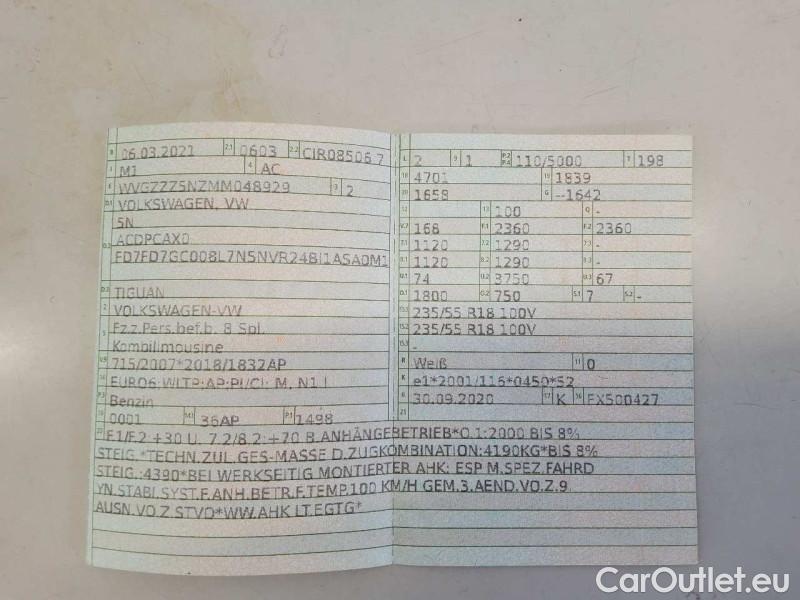 B 06.03.2021 2.1 0603 2.2 CIR08506 7
J M1 4 AC
E WVGZZZ5NZMM048929 3 2
D.1 VOLKSWAGEN, VW
5N
D.2 ACDPCAX0
FD7FD7GC008L7N5NVR24BI1ASA0M1
D.3 TIGUAN
2 VOLKSWAGEN-VW
5 Fz.z.Pers.bef.b. 8 Spl.
Kombilimousine
V.9 715/2007*2018/1832AP
14 EURO6;WLTP;AP;PI/CI; M, N1 I
P.3 Benzin
10 0001 14.1 36AP P.1 1498
L 2 9 1 P.2 P.4 110/5000 T 198
18 4701 19 1839
20 1658 G --1642
12 13 100 Q -
V.7 168 F.1 2360 F.2 2360
7.1 1120 7.2 1290 7.3 -
8.1 1120 8.2 1290 8.3 -
U.1 74 U.2 3750 U.3 67
O.1 1800 O.2 750 S.1 7 S.2 -
15.1 235/55 R18 100V
15.2 235/55 R18 100V
15.3 -
R Weiß 11 0
K e1*2001/116*0450*52
6 30.09.2020 17 K 16 FX500427
21
22 F.1/F.2 +30 U. 7.2/8.2:+70 B.ANHÄNGEBETRIEB*O.1:2000 BIS 8%
STEIG.*TECHN.ZUL.GES-MASSE D.ZUGKOMBINATION:4190KG*BIS 8%
STEIG.:4390*BEI WERKSEITIG MONTIERTER AHK: ESP M.SPEZ.FAHRD
YN.STABI.SYST.F.ANH.BETR.F.TEMP.100 KM/H GEM.3.AEND.VO.Z.9.
AUSN.VO.Z.STVO*WW.AHK LT.EGTG*
CarOutlet.eu